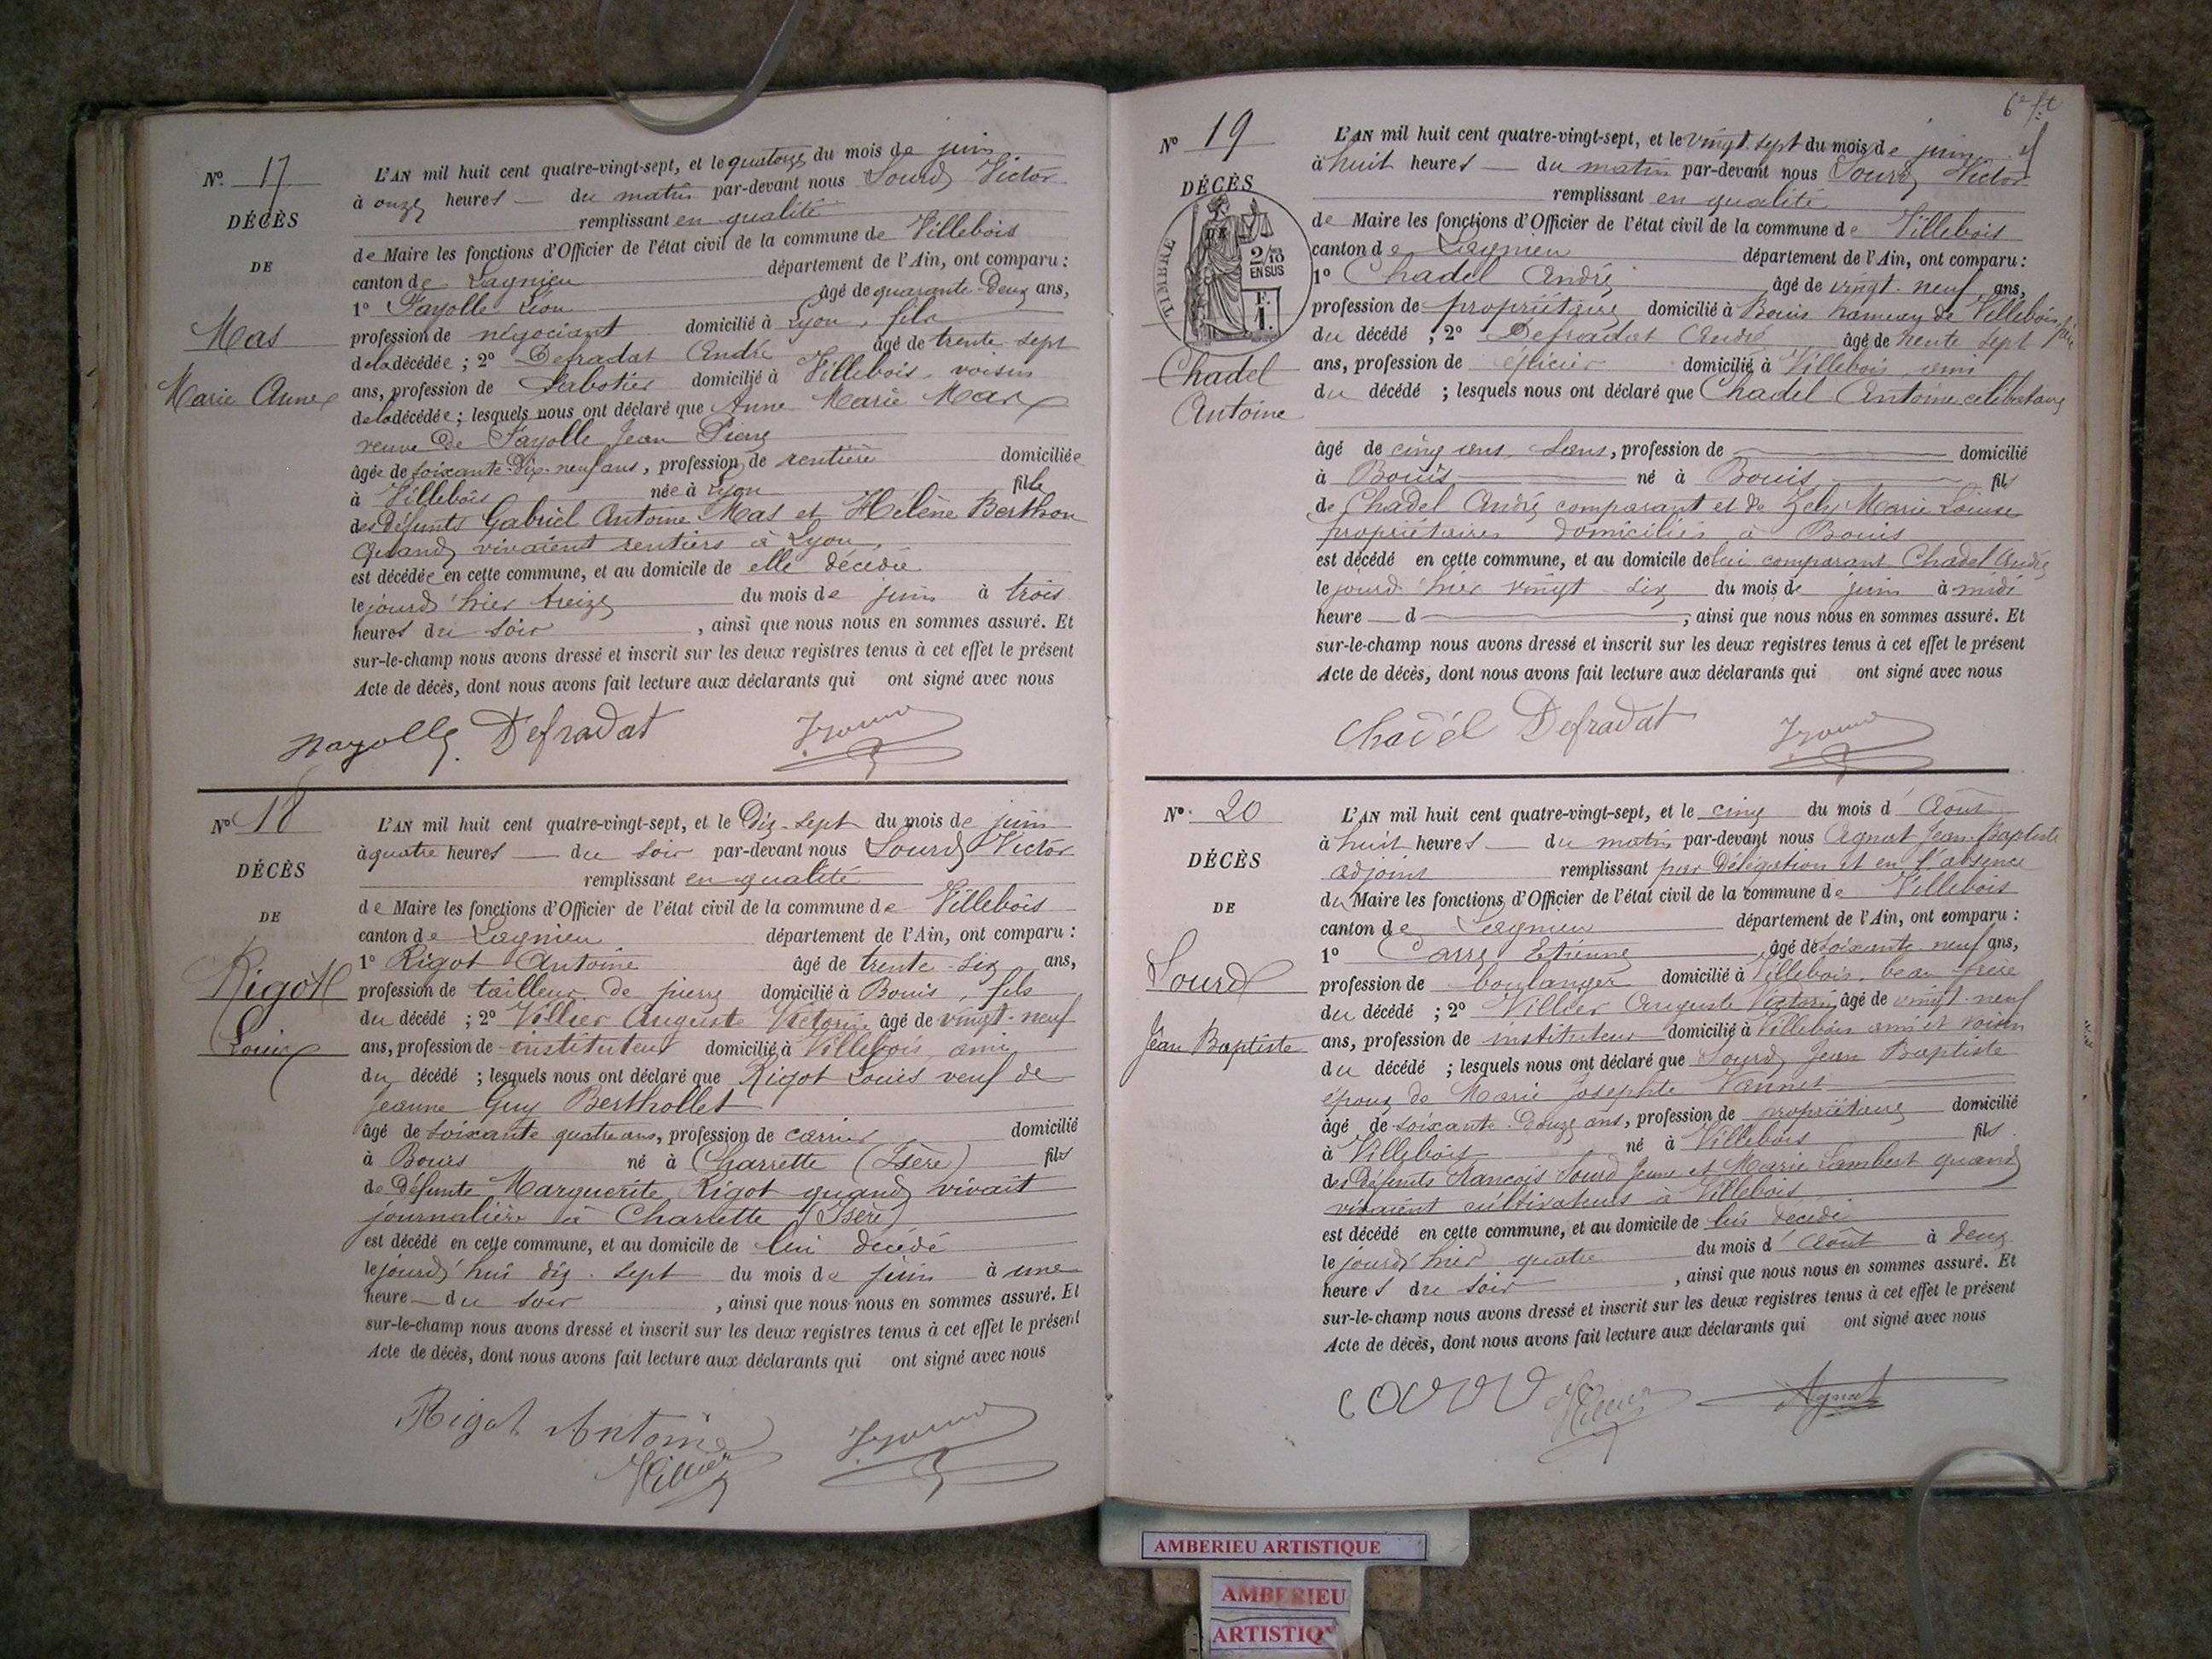 Nº 17
DÉCÈS
DE
Mas
Marie Anne
L'AN mil huit cent quatre-vingt-sept, et le quatorze du mois de juin
à onze heures du matin par-devant nous Sourd Victor
remplissant en qualité
de Maire les fonctions d'Officier de l'état civil de la commune de Villebois
canton de Lagnieu département de l'Ain, ont comparu :
1º Fayolle Léon âgé de quarante-deux ans,
profession de négociant domicilié à Lyon, fils
de la décédée ; 2º Defradat André âgé de trente sept
ans, profession de Sabotier domicilié à Villebois, voisin
de la décédée ; lesquels nous ont déclaré que Anne Marie Mas
veuve de Fayolle Jean Pierre
âgée de soixante-dix-neuf ans, profession de rentière domiciliée
à Villebois née à Lyon fille
des défunts Gabriel Antoine Mas et Hélène Berthon
quand vivaient rentiers à Lyon,
est décédée en cette commune, et au domicile de elle décédée
le jourd'hier treize du mois de juin à trois
heures du soir , ainsi que nous nous en sommes assuré. Et
sur-le-champ nous avons dressé et inscrit sur les deux registres tenus à cet effet le présent
Acte de décès, dont nous avons fait lecture aux déclarants qui ont signé avec nous
Fayolle Defradat
Nº 18
DÉCÈS
DE
Rigot
Louis
L'AN mil huit cent quatre-vingt-sept, et le Dix-sept du mois de juin
à quatre heures du soir par-devant nous Sourd Victor
remplissant en qualité
de Maire les fonctions d'Officier de l'état civil de la commune de Villebois
canton de Lagnieu département de l'Ain, ont comparu :
1º Rigot Antoine âgé de trente-six ans,
profession de tailleur de pierre domicilié à Bouis, fils
du décédé ; 2º Villier Auguste Victorin âgé de vingt-neuf
ans, profession de instituteur domicilié à Villebois, ami
du décédé ; lesquels nous ont déclaré que Rigot Louis veuf de
Jeanne Guy Berthollet
âgé de soixante quatre ans, profession de carrier domicilié
à Bouis né à Charrette (Isère) fils
de défunte Marguerite Rigot quand vivait
journalière à Charrette (Isère)
est décédé en cette commune, et au domicile de lui décédé
le jourd'hui dix-sept du mois de juin à une
heure du soir , ainsi que nous nous en sommes assuré. Et
sur-le-champ nous avons dressé et inscrit sur les deux registres tenus à cet effet le présent
Acte de décès, dont nous avons fait lecture aux déclarants qui ont signé avec nous
Rigot Antoine
Villier
Nº 19
DÉCÈS
TIMBRE
2/10
EN SUS
F.
1.
Chadel
Antoine
L'AN mil huit cent quatre-vingt-sept, et le vingt-sept du mois de juin
à huit heures du matin par-devant nous Sourd Victor
remplissant en qualité
de Maire les fonctions d'Officier de l'état civil de la commune de Villebois
canton de Lagnieu département de l'Ain, ont comparu :
1º Chadel André âgé de vingt-neuf ans,
profession de propriétaire domicilié à Bouis hameau de Villebois, père
du décédé ; 2º Defradat André âgé de trente sept
ans, profession de épicier domicilié à Villebois, ami
du décédé ; lesquels nous ont déclaré que Chadel Antoine célibataire
âgé de cinq ans, sans, profession de domicilié
à Bouis né à Bouis fils
de Chadel André comparant et de Zely Marie Louise
propriétaires domiciliés à Bouis
est décédé en cette commune, et au domicile de lui comparant Chadel André
le jourd'hier vingt-six du mois de juin à midi
heure d ; ainsi que nous nous en sommes assuré. Et
sur-le-champ nous avons dressé et inscrit sur les deux registres tenus à cet effet le présent
Acte de décès, dont nous avons fait lecture aux déclarants qui ont signé avec nous
Chadel Defradat
Nº 20
DÉCÈS
DE
Sourd
Jean Baptiste
L'AN mil huit cent quatre-vingt-sept, et le cinq du mois d'Août
à huit heures du matin par-devant nous Agnat Jean-Baptiste
adjoint remplissant par délégation et en l'absence
du Maire les fonctions d'Officier de l'état civil de la commune de Villebois
canton de Lagnieu département de l'Ain, ont comparu :
1º Carre Etienne âgé de soixante-neuf ans,
profession de boulanger domicilié à Villebois, beau-frère
du décédé ; 2º Villier Auguste Victorin âgé de vingt-neuf
ans, profession de instituteur domicilié à Villebois ami et voisin
du décédé ; lesquels nous ont déclaré que Sourd Jean Baptiste
époux de Marie Josephte Vannet
âgé de soixante-douze ans, profession de propriétaire domicilié
à Villebois né à Villebois fils
des défunts François Sourd Jeune et Marie Lambert quand
vivaient cultivateurs à Villebois
est décédé en cette commune, et au domicile de lui décédé
le jourd'hier quatre du mois d'Août à deux
heures du soir , ainsi que nous nous en sommes assuré. Et
sur-le-champ nous avons dressé et inscrit sur les deux registres tenus à cet effet le présent
Acte de décès, dont nous avons fait lecture aux déclarants qui ont signé avec nous
Villier Agnat
AMBERIEU ARTISTIQUE
AMBERIEU
ARTISTIQ